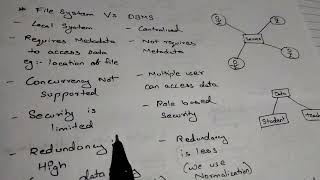 * File System Vs DBMS
- Local System
- Centralised
- Requires Metadata
to access data
eg:- location of file
- Not requires
Metadata
- Concurrency Not
Supported
- Multiple user
can access data
- Security is
limited
- Role based
Security
- Redundancy
High
- Redundancy
is less
(we use
Normalization)
data
Server
Data
Student
Teach